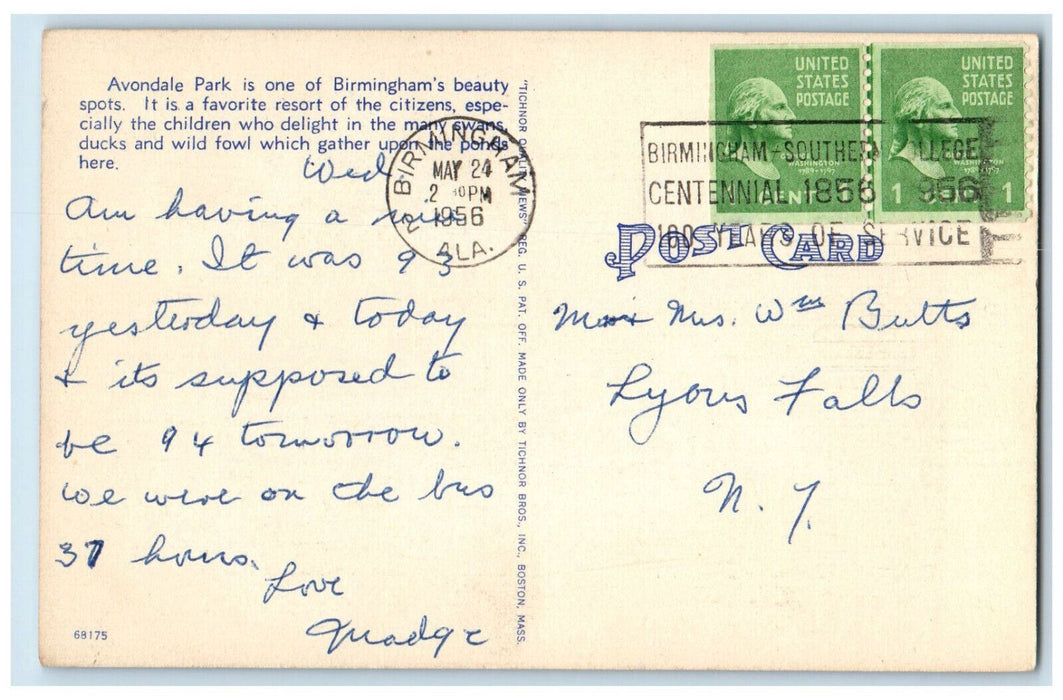 Avondale Park is one of Birmingham's beauty
spots. It is a favorite resort of the citizens, espe-
cially the children who delight in the many swans,
ducks and wild fowl which gather upon the ponds
here.
Wed
Am having a nice
time. It was 93
yesterday & today
& its supposed to
be 94 tomorrow.
We were on the bus
37 hours.
Love
Madge
68175
"TICHNOR QUALITY VIEWS" REG. U. S. PAT. OFF. MADE ONLY BY TICHNOR BROS., INC., BOSTON, MASS.
BIRMINGHAM
MAY 24
2 30PM
1956
ALA.
2
UNITED
STATES
POSTAGE
WASHINGTON
1789-1797
UNITED
STATES
POSTAGE
WASHINGTON
1 1
BIRMINGHAM-SOUTHERN COLLEGE
CENTENNIAL 1856 1956
100 YEARS OF SERVICE
POST CARD
Mrs. Wm Butts
Lyons Falls
N. Y.